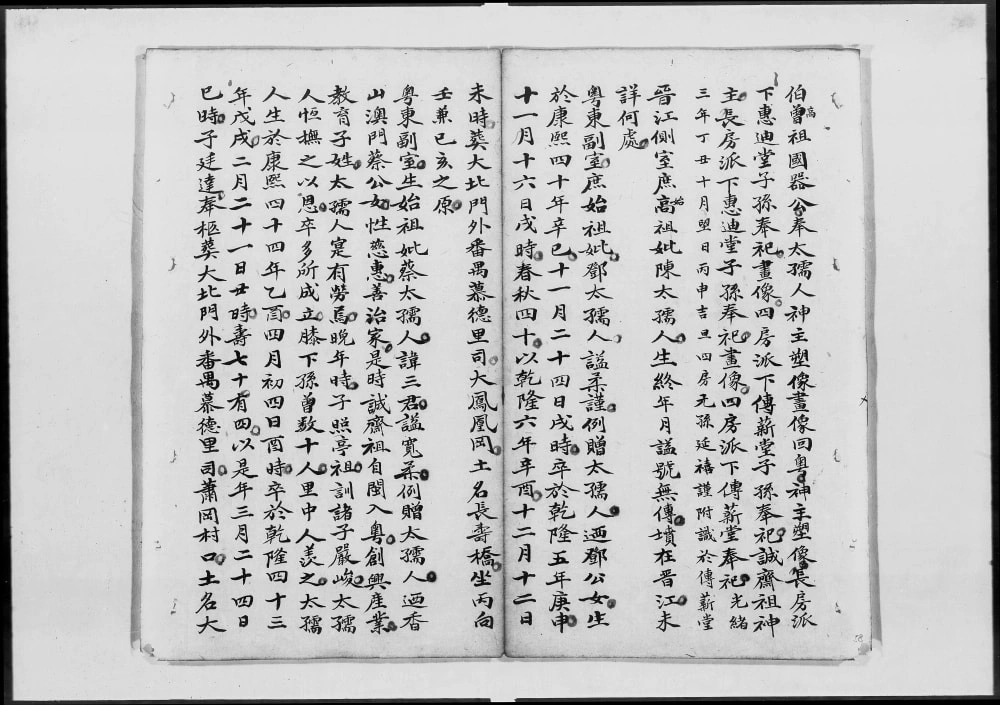 伯曾高祖國器公奉太孺人神主塑像畫像回粵神主塑像長房派
下惠迪堂子孫奉祀畫像四房派下傳薪堂子孫奉祀誠齋祖神
主長房派下惠迪堂子孫奉祀畫像四房派下傳薪堂奉祀光緒
三年丁丑十月望日丙申吉旦四房元孫延禧謹附識於傳薪堂
晉江側室庶高始祖妣陳太孺人生終年月謚號無傳墳在晉江未
詳何處
粵東副室庶始祖妣鄧太孺人謚柔謹例贈太孺人迺鄧公女生
於康熙四十年辛巳十一月二十四日戌時卒於乾隆五年庚申
十一月十六日戌時春秋四十以乾隆六年辛酉十二月十二日
未時葬大北門外番禺慕德里司大鳳凰岡土名長壽橋坐丙向
壬兼巳亥之原
粵東副室生始祖妣蔡太孺人諱三君謚寬柔例贈太孺人迺香
山澳門蔡公女性慈惠善治家是時誠齋祖自閩入粵創興產業
教育子姓太孺人寔有勞焉晚年時子照亭祖訓諸子嚴峻太孺
人恒撫之以恩卒多所成立膝下孫曾数十人里中人羨之太孺
人生於康熙四十四年乙酉四月初四日酉時卒於乾隆四十三
年戊戌二月二十一日丑時壽七十有四以是年三月二十四日
巳時子廷達奉柩葬大北門外番禺慕德里司蕭岡村口土名大